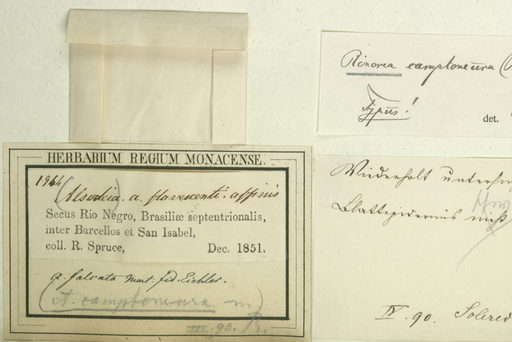 Rinorea camptoneura (
Typus!
det.
HERBARIUM REGIUM MONACENSE.
1964 (Alsodeia) a. flavescenti affinis
Secus Rio Negro, Brasiliæ septentrionalis,
inter Barcellos et San Isabel,
coll. R. Spruce, Dec. 1851.
a. falcata Mart. fid. Eichler.
(A. camptoneura m)
III. 90. R.
Blattepidermis nicht
IV. 90. Solered